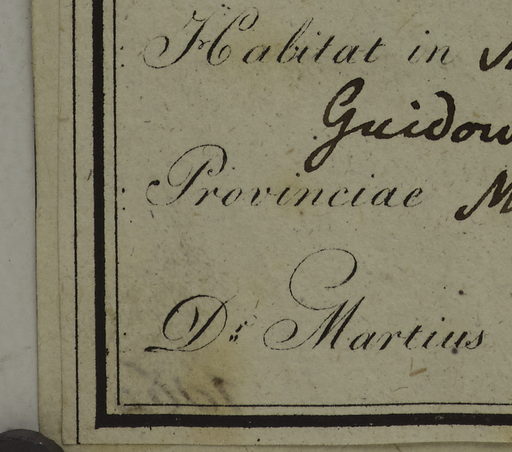 Habitat in
Guidow
Provinciae M
Dr. Martius